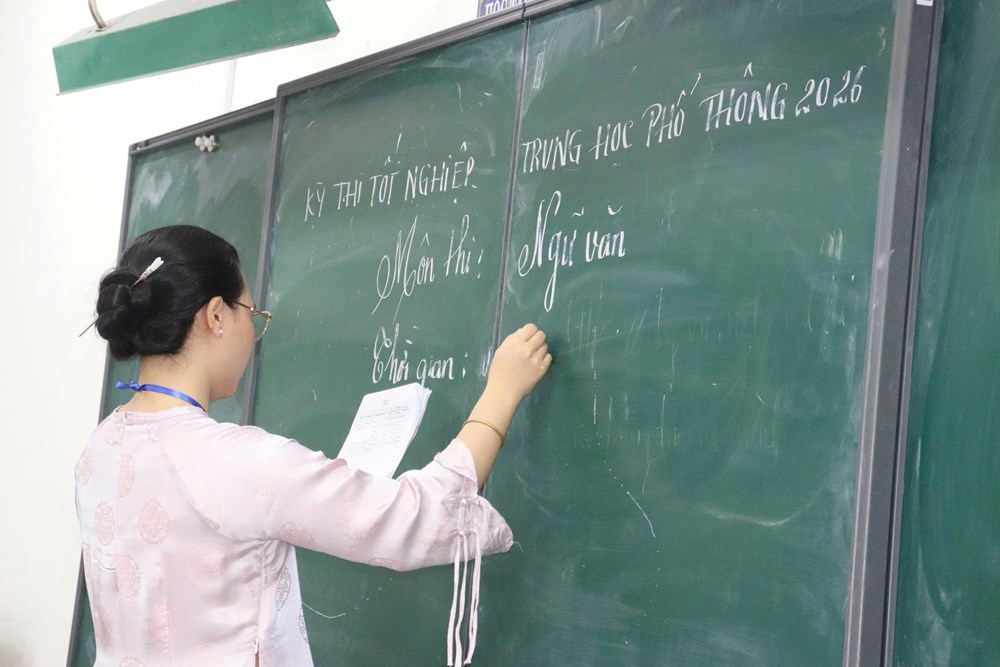 KỲ THI TỐT NGHIỆP TRUNG HỌC PHỔ THÔNG 2026
Môn thi: Ngữ văn
Thời gian: